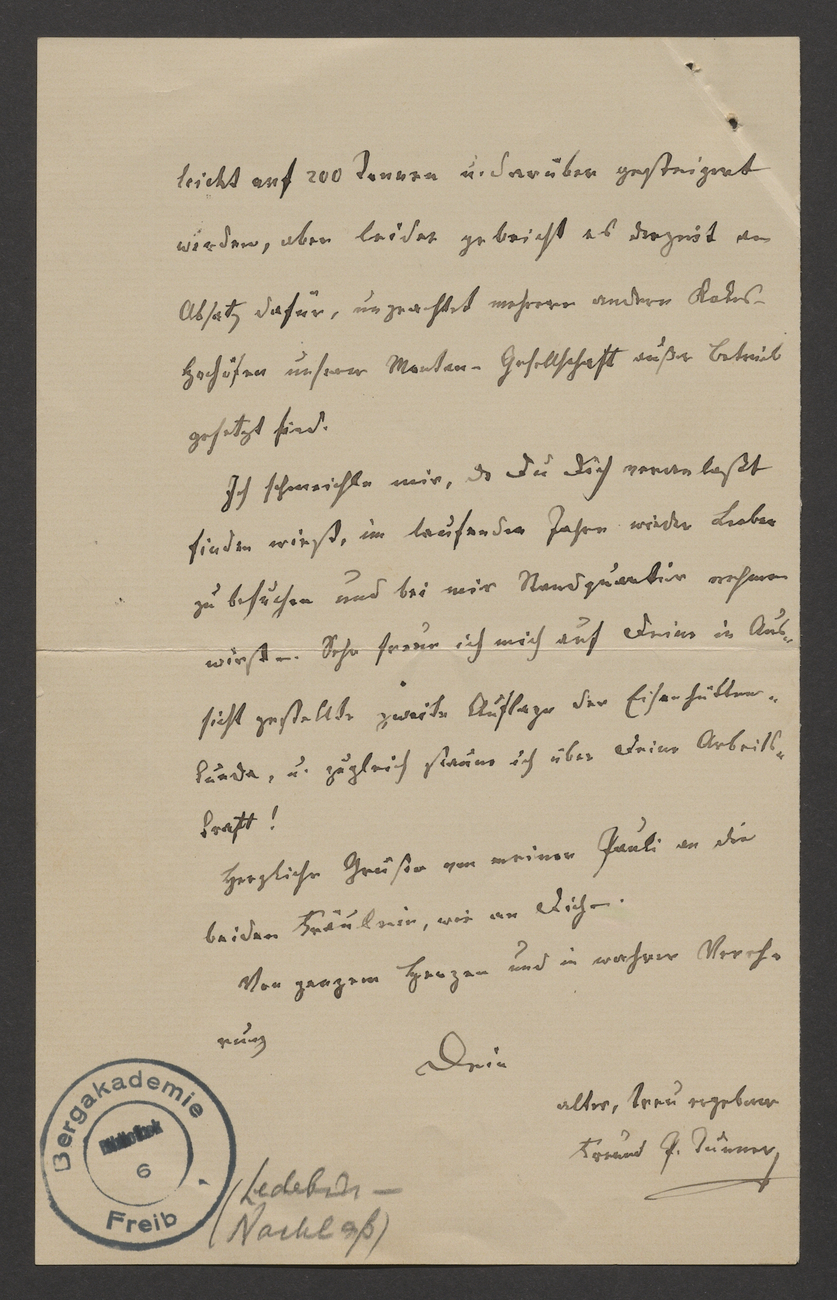 leicht auf 200 Tonnen u. darüber gesteigert
werden, aber leider gebricht es derzeit an
Absatz dafür, ungeachtet mehrere andere Kokes-
Hochöfen unserer Montan-Gesellschaft außer Betrieb
gesetzt sind.
Ich schmeichle mir, da Du Dich veranlaßt
finden wirst, im laufenden Jahre wieder Leoben
zu besuchen und bei mir Standquartier nehmen
wirst. Sehr freue ich mich auf Deine in Aus-
sicht gestellte zweite Auflage der Eisenhütten-
kunde, u. zugleich staune ich über Deine Arbeits-
kraft!
Herzliche Grüße von meiner Pauli an die
beiden Fräulein, wie an Dich.
Von ganzem Herzen und in wahrer Vereh-
rung
Dein
alter, treu ergebener
Freund P. Tunner
Bergakademie
Bibliothek
6
Freib
(Ledebur-
Nachlaß)